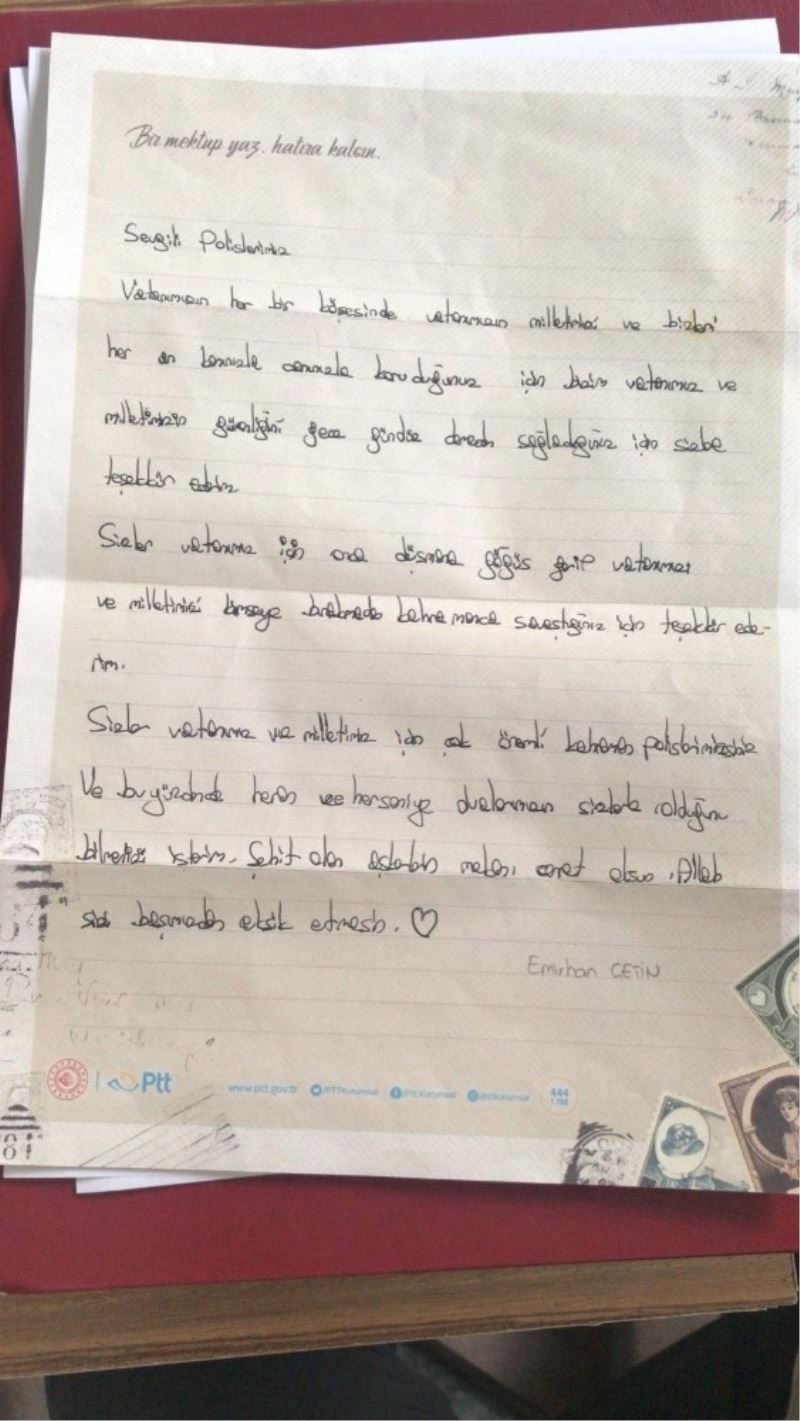 Bir mektup yaz, hatıra kalsın.
Sevgili Polislerimiz
Vatanımızın her bir köşesinde vatanımızın milletinizi ve bizleri
her an kanınızla canınızla koruduğunuz için bizim vatanımız ve
milletimizin güvenliğini gece gündüz demeden sağladığınız için sizlere
teşekkür ederim
Sizler vatanımız için orda düşmana göğüs gerip vatanımızı
ve milletinizi kimseye bırakmadan kahramanca savaştığınız için teşekkür ede-
rim.
Sizler vatanımız ve milletimiz için çok önemli kahraman polislerimizsiniz
Ve bu yüzden her an ve her saniye dualarımızın sizlerle olduğunu
bilmenizi isterim. Şehit olan mekanı cennet olsun. Allah
sizi başımızdan eksik etmesin. ♡
Emirhan ÇETİN
Ptt
www.ptt.gov.tr /PTTKurumsal /Ptt.Kurumsal /pttkurumsal 444 1 788